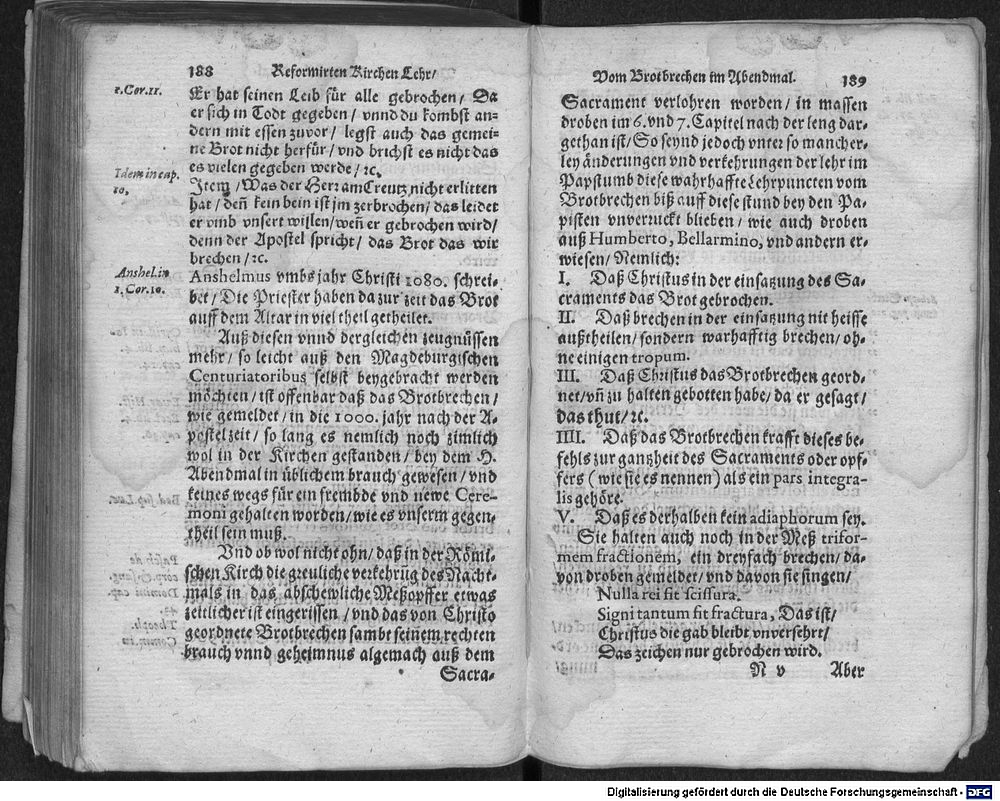 188 Reformirten Kirchen Lehr/
1.Cor.11.
Er hat seinen Leib für alle gebrochen/ Da
er sich in Todt gegeben/ vnnd du kombst an-
dern mit essen zuvor/ legst auch das gemei-
ne Brot nicht herfür/ vnd brichst es nicht das
es vielen gegeben werde/ ꝛc.
Idem in cap.
10.
Item/ Was der Herr am Creutz nicht erlitten
hat/ deñ kein bein ist jm zerbrochen/ das leidet
er vmb vnsert willen/ weñ er gebrochen wird/
denn der Apostel spricht/ das Brot das wir
brechen/ ꝛc.
Anshel. in
1.Cor.10.
Anshelmus vmbs jahr Christi 1080. schrei-
bet/ Die Priester haben da zur zeit das Brot
auff dem Altar in viel theil getheilet.
Auß diesen vnnd dergleichen zeugnüssen
mehr/ so leicht auß den Magdeburgischen
Centuriatoribus selbst beygebracht werden
möchten/ ist offenbar daß das Brotbrechen/
wie gemeldet/ in die 1000. jahr nach der A-
postel zeit/ so lang es nemlich noch zimlich
wol in der Kirchen gestanden/ bey dem H.
Abendmal in üblichem brauch gewesen/ vnd
keines wegs für ein frembde vnd newe Cere-
moni gehalten worden/ wie es vnserm gegen-
theil sein muß.
Vnd ob wol nicht ohn/ daß in der Römi-
schen Kirch die greuliche verkehrũg des Nacht-
mals in das abschewliche Meßopffer etwas
zeitlicher ist eingerissen/ vnd das von Christo
geordnete Brotbrechen sambt seinem rechten
brauch vnnd geheimnus algemach auß dem
Sacra-
Vom Brotbrechen im Abendmal. 189
Sacrament verlohren worden/ in massen
droben im 6. vnd 7. Capitel nach der leng dar-
gethan ist/ So seynd jedoch vnter so mancher-
ley änderungen vnd verkehrungen der lehr im
Papstumb diese wahrhaffte Lehrpuncten vom
Brotbrechen biß auff diese stund bey den Pa-
pisten vnverruckt blieben/ wie auch droben
auß Humberto, Bellarmino, vnd andern er-
wiesen/ Nemlich:
I. Daß Christus in der einsatzung des Sa-
craments das Brot gebrochen.
II. Daß brechen in der einsatzung nit heisse
außtheilen/ sondern warhafftig brechen/ oh-
ne einigen tropum.
III. Daß Christus das Brotbrechen geord-
net/ vñ zu halten gebotten habe/ da er gesagt/
das thut/ ꝛc.
IIII. Daß das Brotbrechen krafft dieses be-
fehls zur gantzheit des Sacraments oder opf-
fers (wie sie es nennen) als ein pars integra-
lis gehöre.
V. Daß es derhalben kein adiaphorum sey.
Sie halten auch noch in der Meß trifor-
mem fractionem, ein dreyfach brechen/ da-
von droben gemeldet/ vnd davon sie singen/
Nulla rei fit scissura.
Signi tantum fit fractura, Das ist/
Christus die gab bleibt vnversehrt/
Das zeichen nur gebrochen wird.
N v Aber
Digitalisierung gefördert durch die Deutsche Forschungsgemeinschaft - DFG